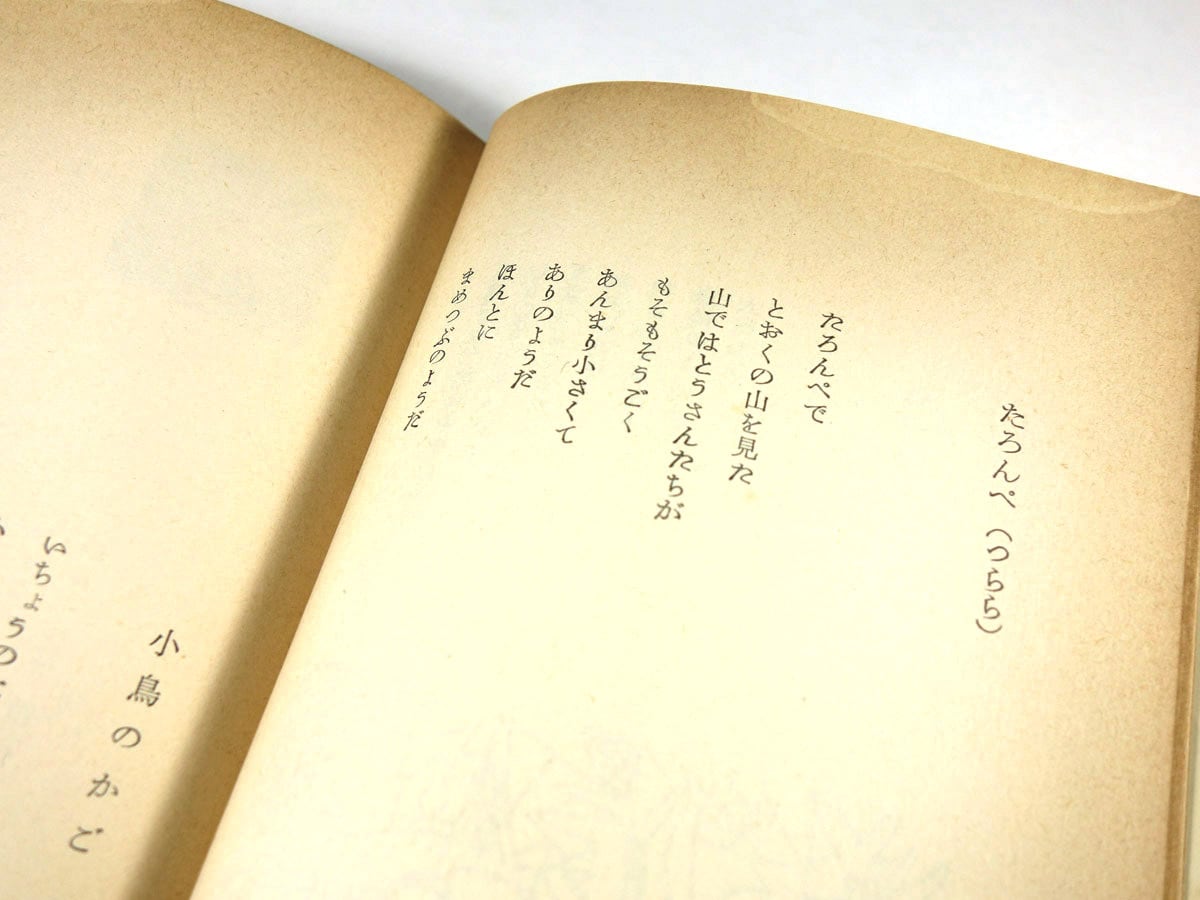 たろんぺ（つらら）
たろんぺで
とおくの山を見た
山ではとうさんたちが
もそもそうごく
あんまり小さくて
ありのようだ
ほんとに
まめつぶのようだ
小鳥のかご
いちょうの